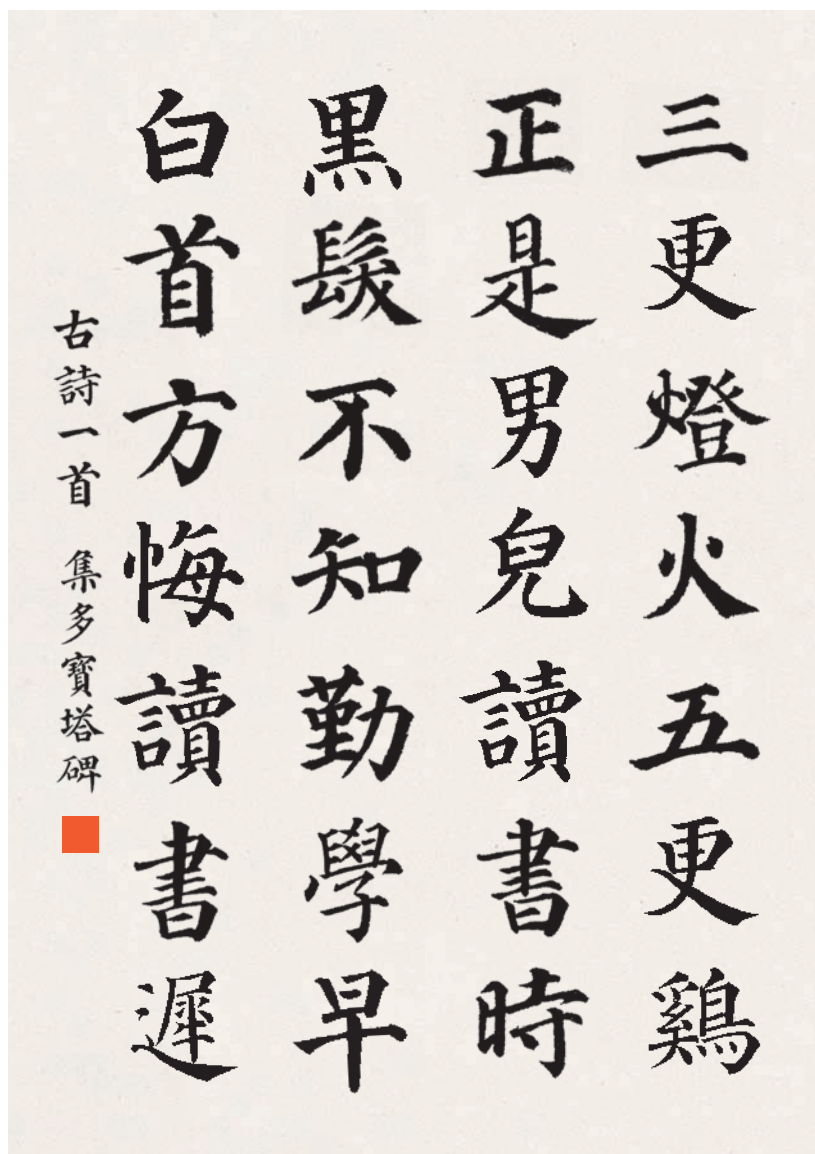 三更燈火五更鷄
正是男兒讀書時
黑髮不知勤學早
白首方悔讀書遲
古詩一首 集多寶塔碑